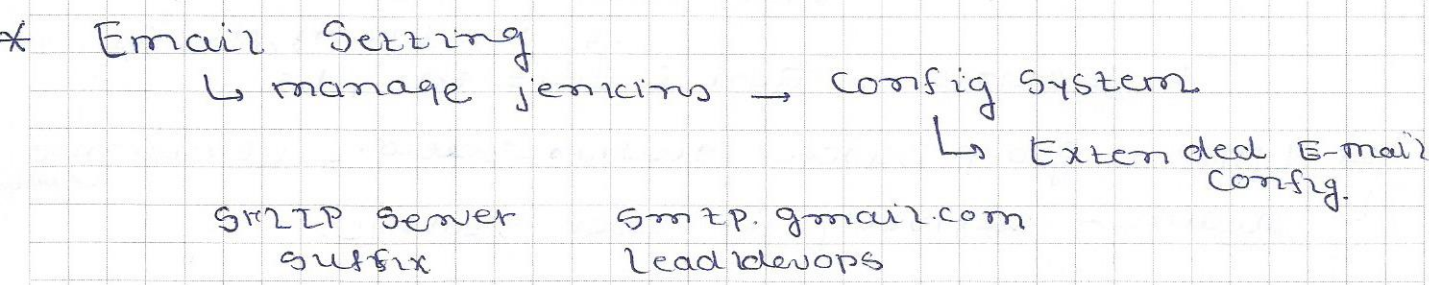 * Email Setting
↳ manage jenkins → config System
↳ Extended E-mail
config.
SMTP Server smtp.gmail.com
suffix